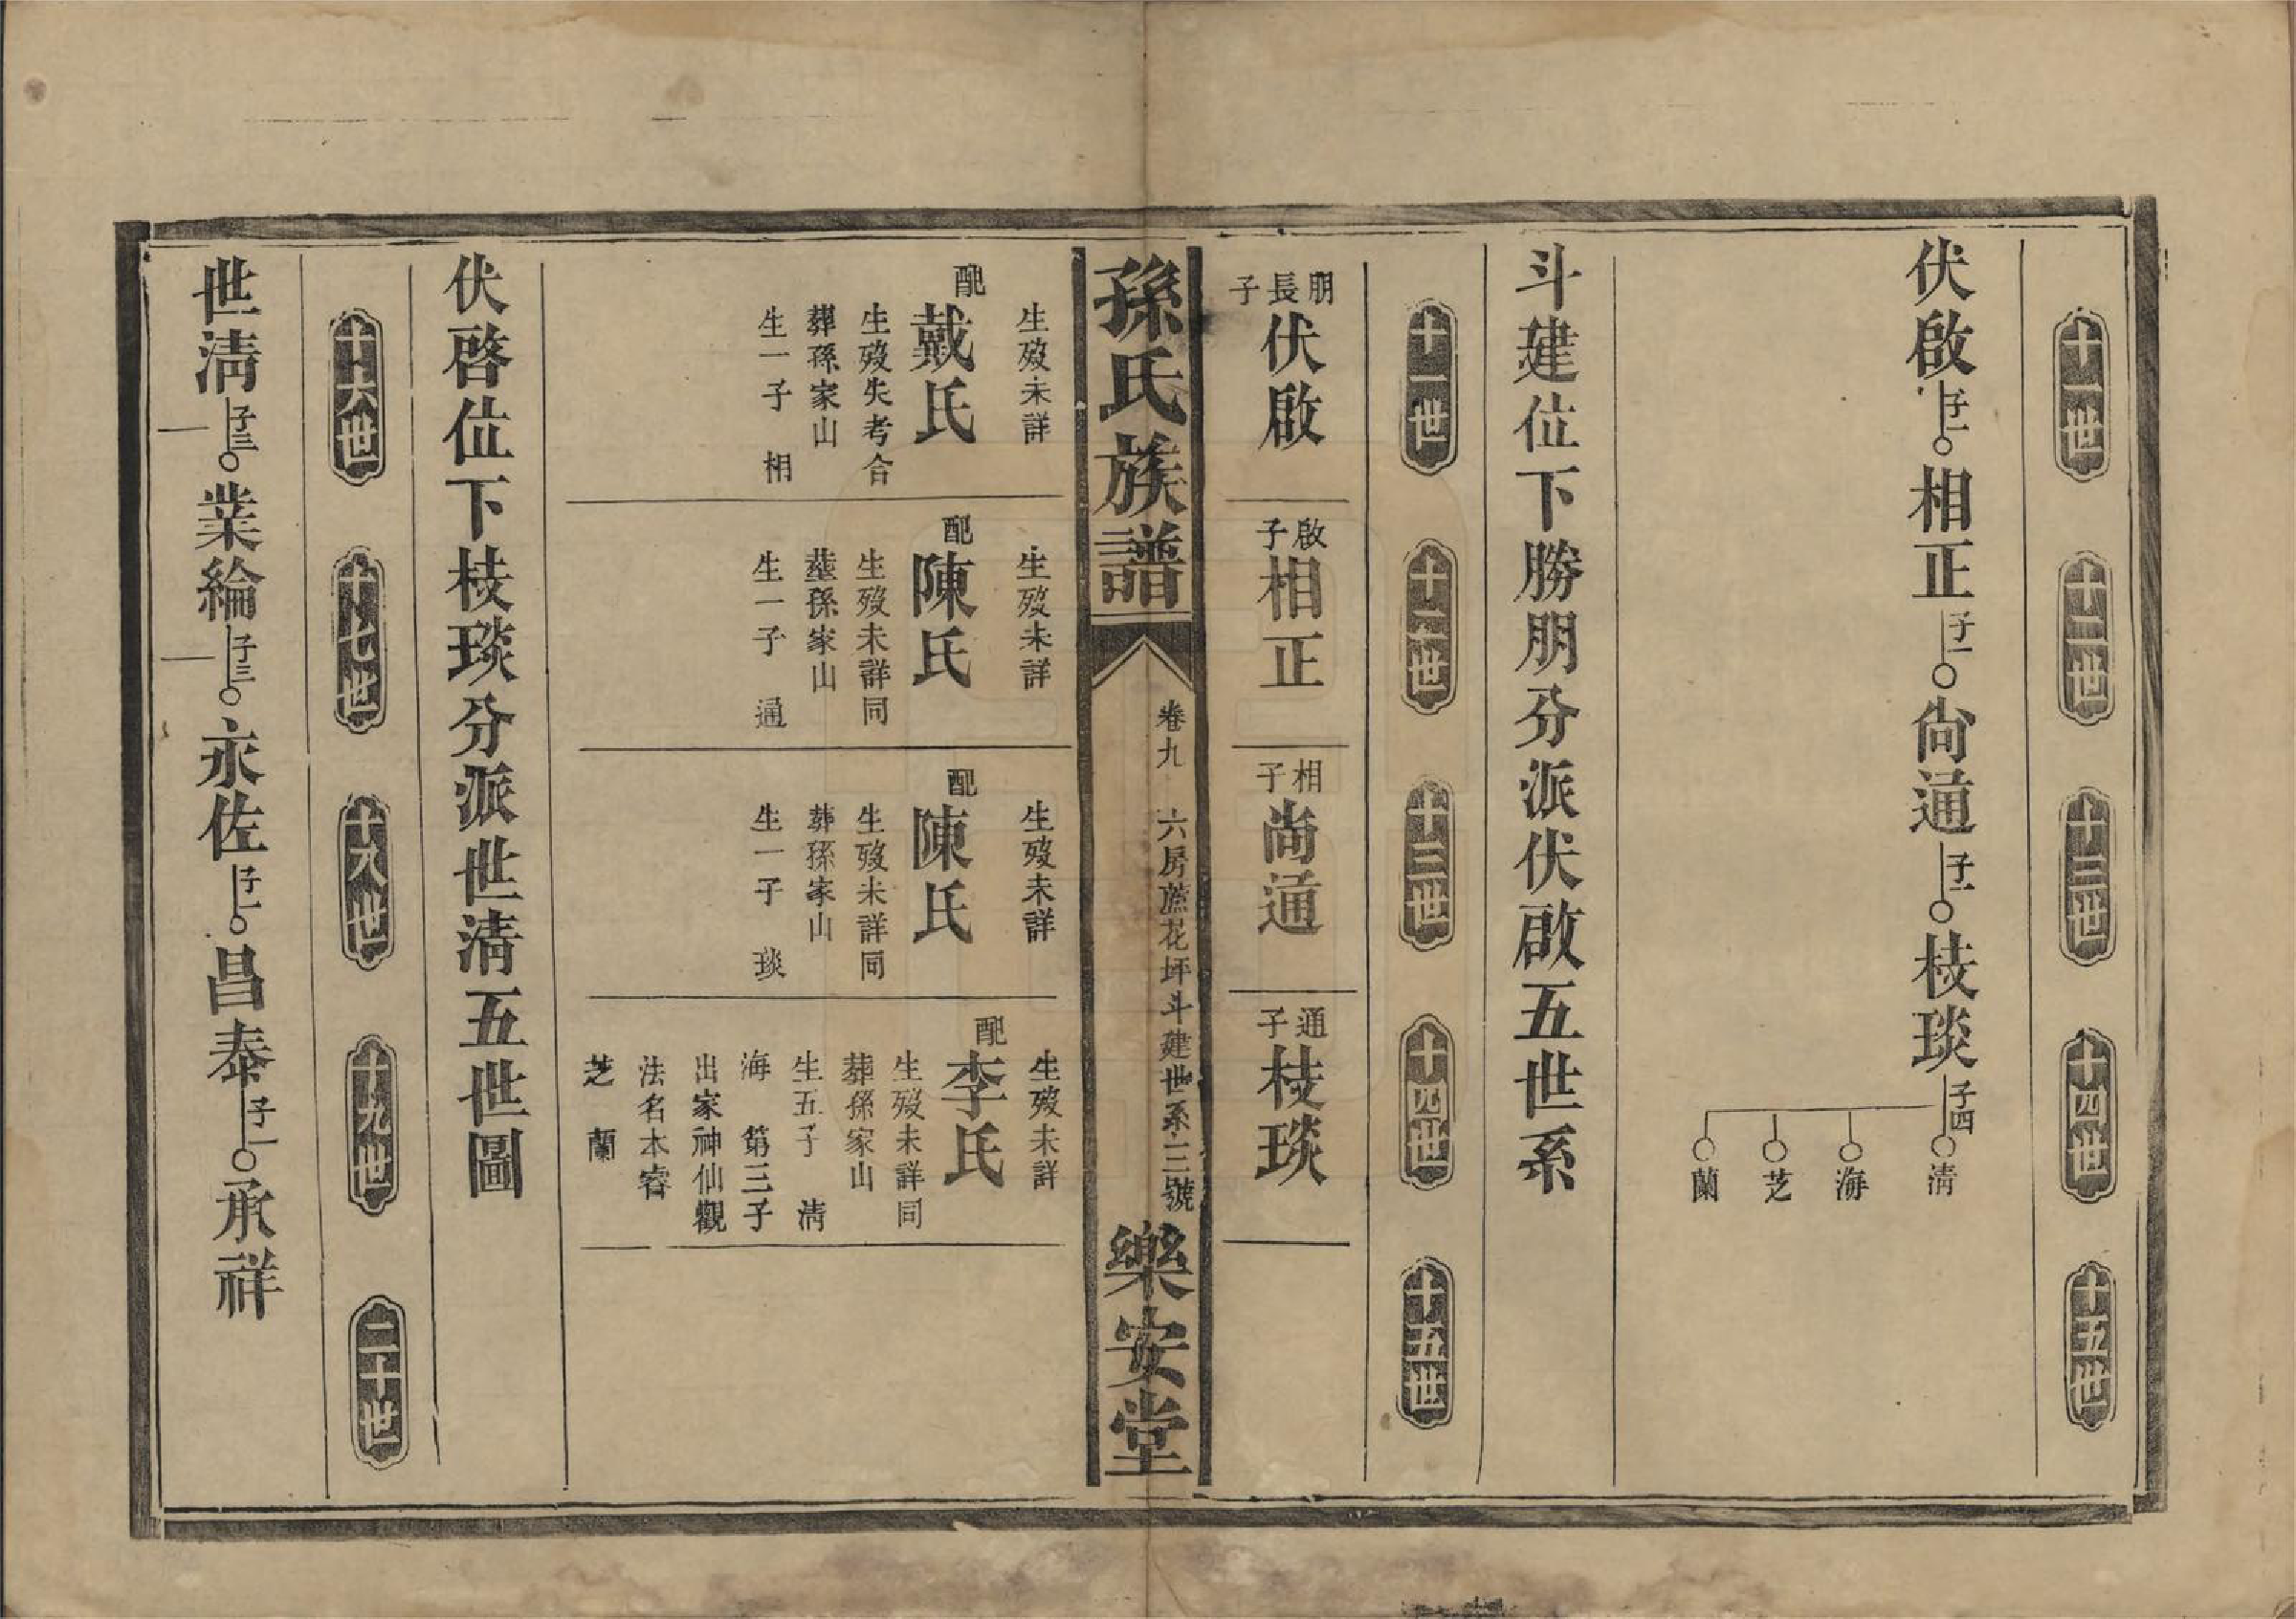 十一世 十二世 十三世 十四世 十五世
伏啟 子一 相正 子一 尚通 子一 枝琰 子四 清
海
芝
蘭
斗建位下勝朋分派伏啟五世系
十一世 十二世 十三世 十四世 十五世
朋長子 伏啟
啟子 相正
相子 尚通
通子 枝琰
孫氏族譜 卷九 六房蔴花坪斗建世系 三號 樂安堂
生歿未詳
配戴氏
生歿失考合
葬孫家山
生一子 相
生歿未詳
配陳氏
生歿未詳同
塟孫家山
生一子 通
生歿未詳
配陳氏
生歿未詳同
葬孫家山
生一子 琰
生歿未詳
配李氏
生歿未詳同
葬孫家山
生五子 清
海 第三子
出家神仙觀
法名本睿
芝 蘭
伏啓位下枝琰分派世清五世圖
十六世 十七世 十八世 十九世 二十世
世清 子三 業綸 子三 永佐 子一 昌泰 子一 承祥